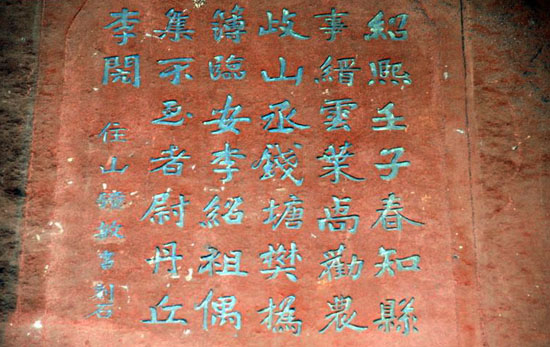 紹熙壬子春知縣
事縉雲葉卨勸農
歧山丞錢塘樊撝
簿臨安李紹祖偶
集不至者尉丹丘
李
住山敏書刻石